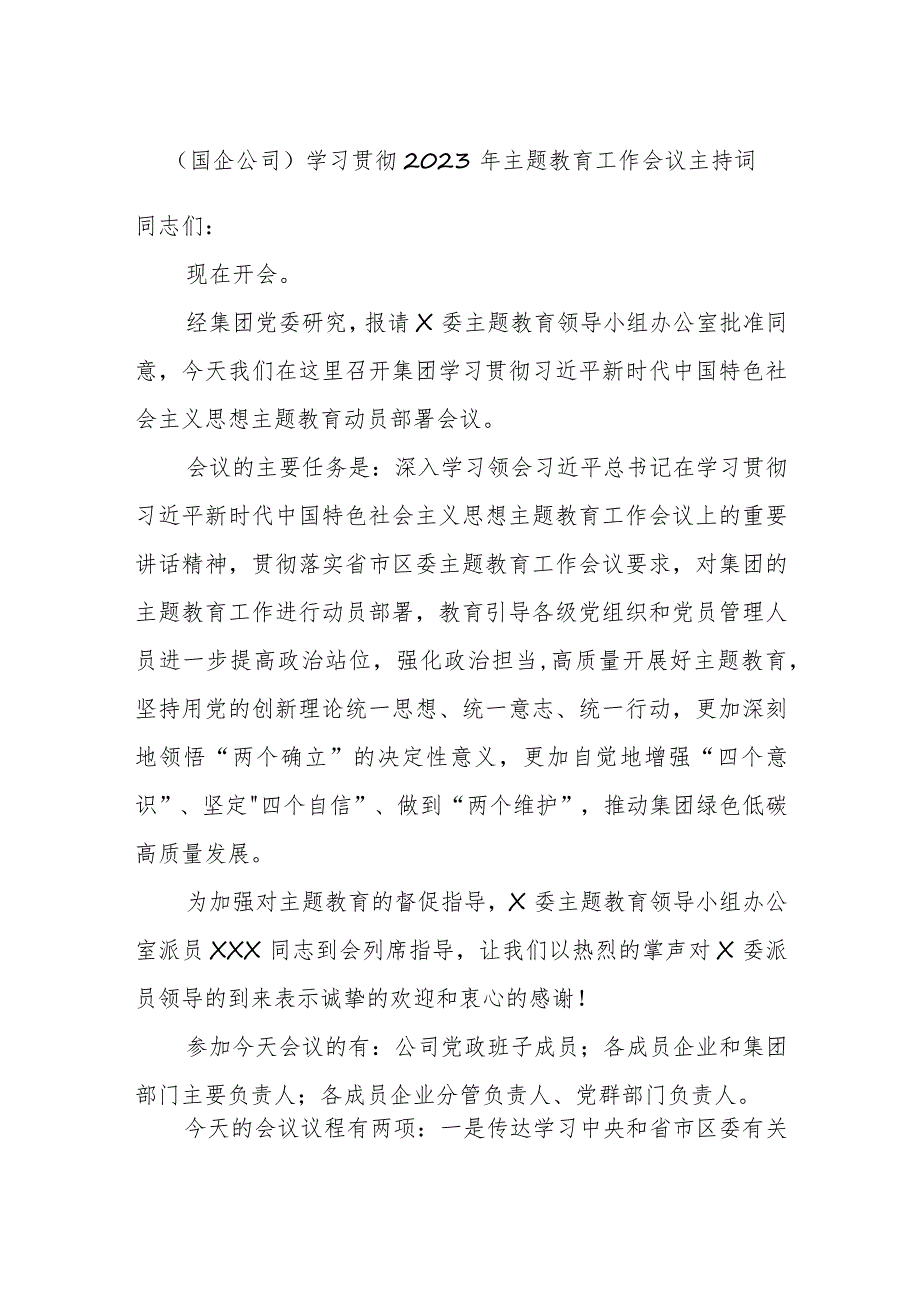 （国企公司）学习贯彻2023年主题教育工作会议主持词
同志们：
现在开会。
经集团党委研究，报请X委主题教育领导小组办公室批准同
意，今天我们在这里召开集团学习贯彻习近平新时代中国特色社
会主义思想主题教育动员部署会议。
会议的主要任务是：深入学习领会习近平总书记在学习贯彻
习近平新时代中国特色社会主义思想主题教育工作会议上的重要
讲话精神，贯彻落实省市区委主题教育工作会议要求，对集团的
主题教育工作进行动员部署，教育引导各级党组织和党员管理人
员进一步提高政治站位，强化政治担当,高质量开展好主题教育，
坚持用党的创新理论统一思想、统一意志、统一行动，更加深刻
地领悟“两个确立”的决定性意义，更加自觉地增强“四个意
识”、坚定"四个自信”、做到“两个维护”，推动集团绿色低碳
高质量发展。
为加强对主题教育的督促指导，X委主题教育领导小组办公
室派员XXX同志到会列席指导，让我们以热烈的掌声对X委派
员领导的到来表示诚挚的欢迎和衷心的感谢！
参加今天会议的有：公司党政班子成员；各成员企业和集团
部门主要负责人；各成员企业分管负责人、党群部门负责人。
今天的会议议程有两项：一是传达学习中央和省市区委有关